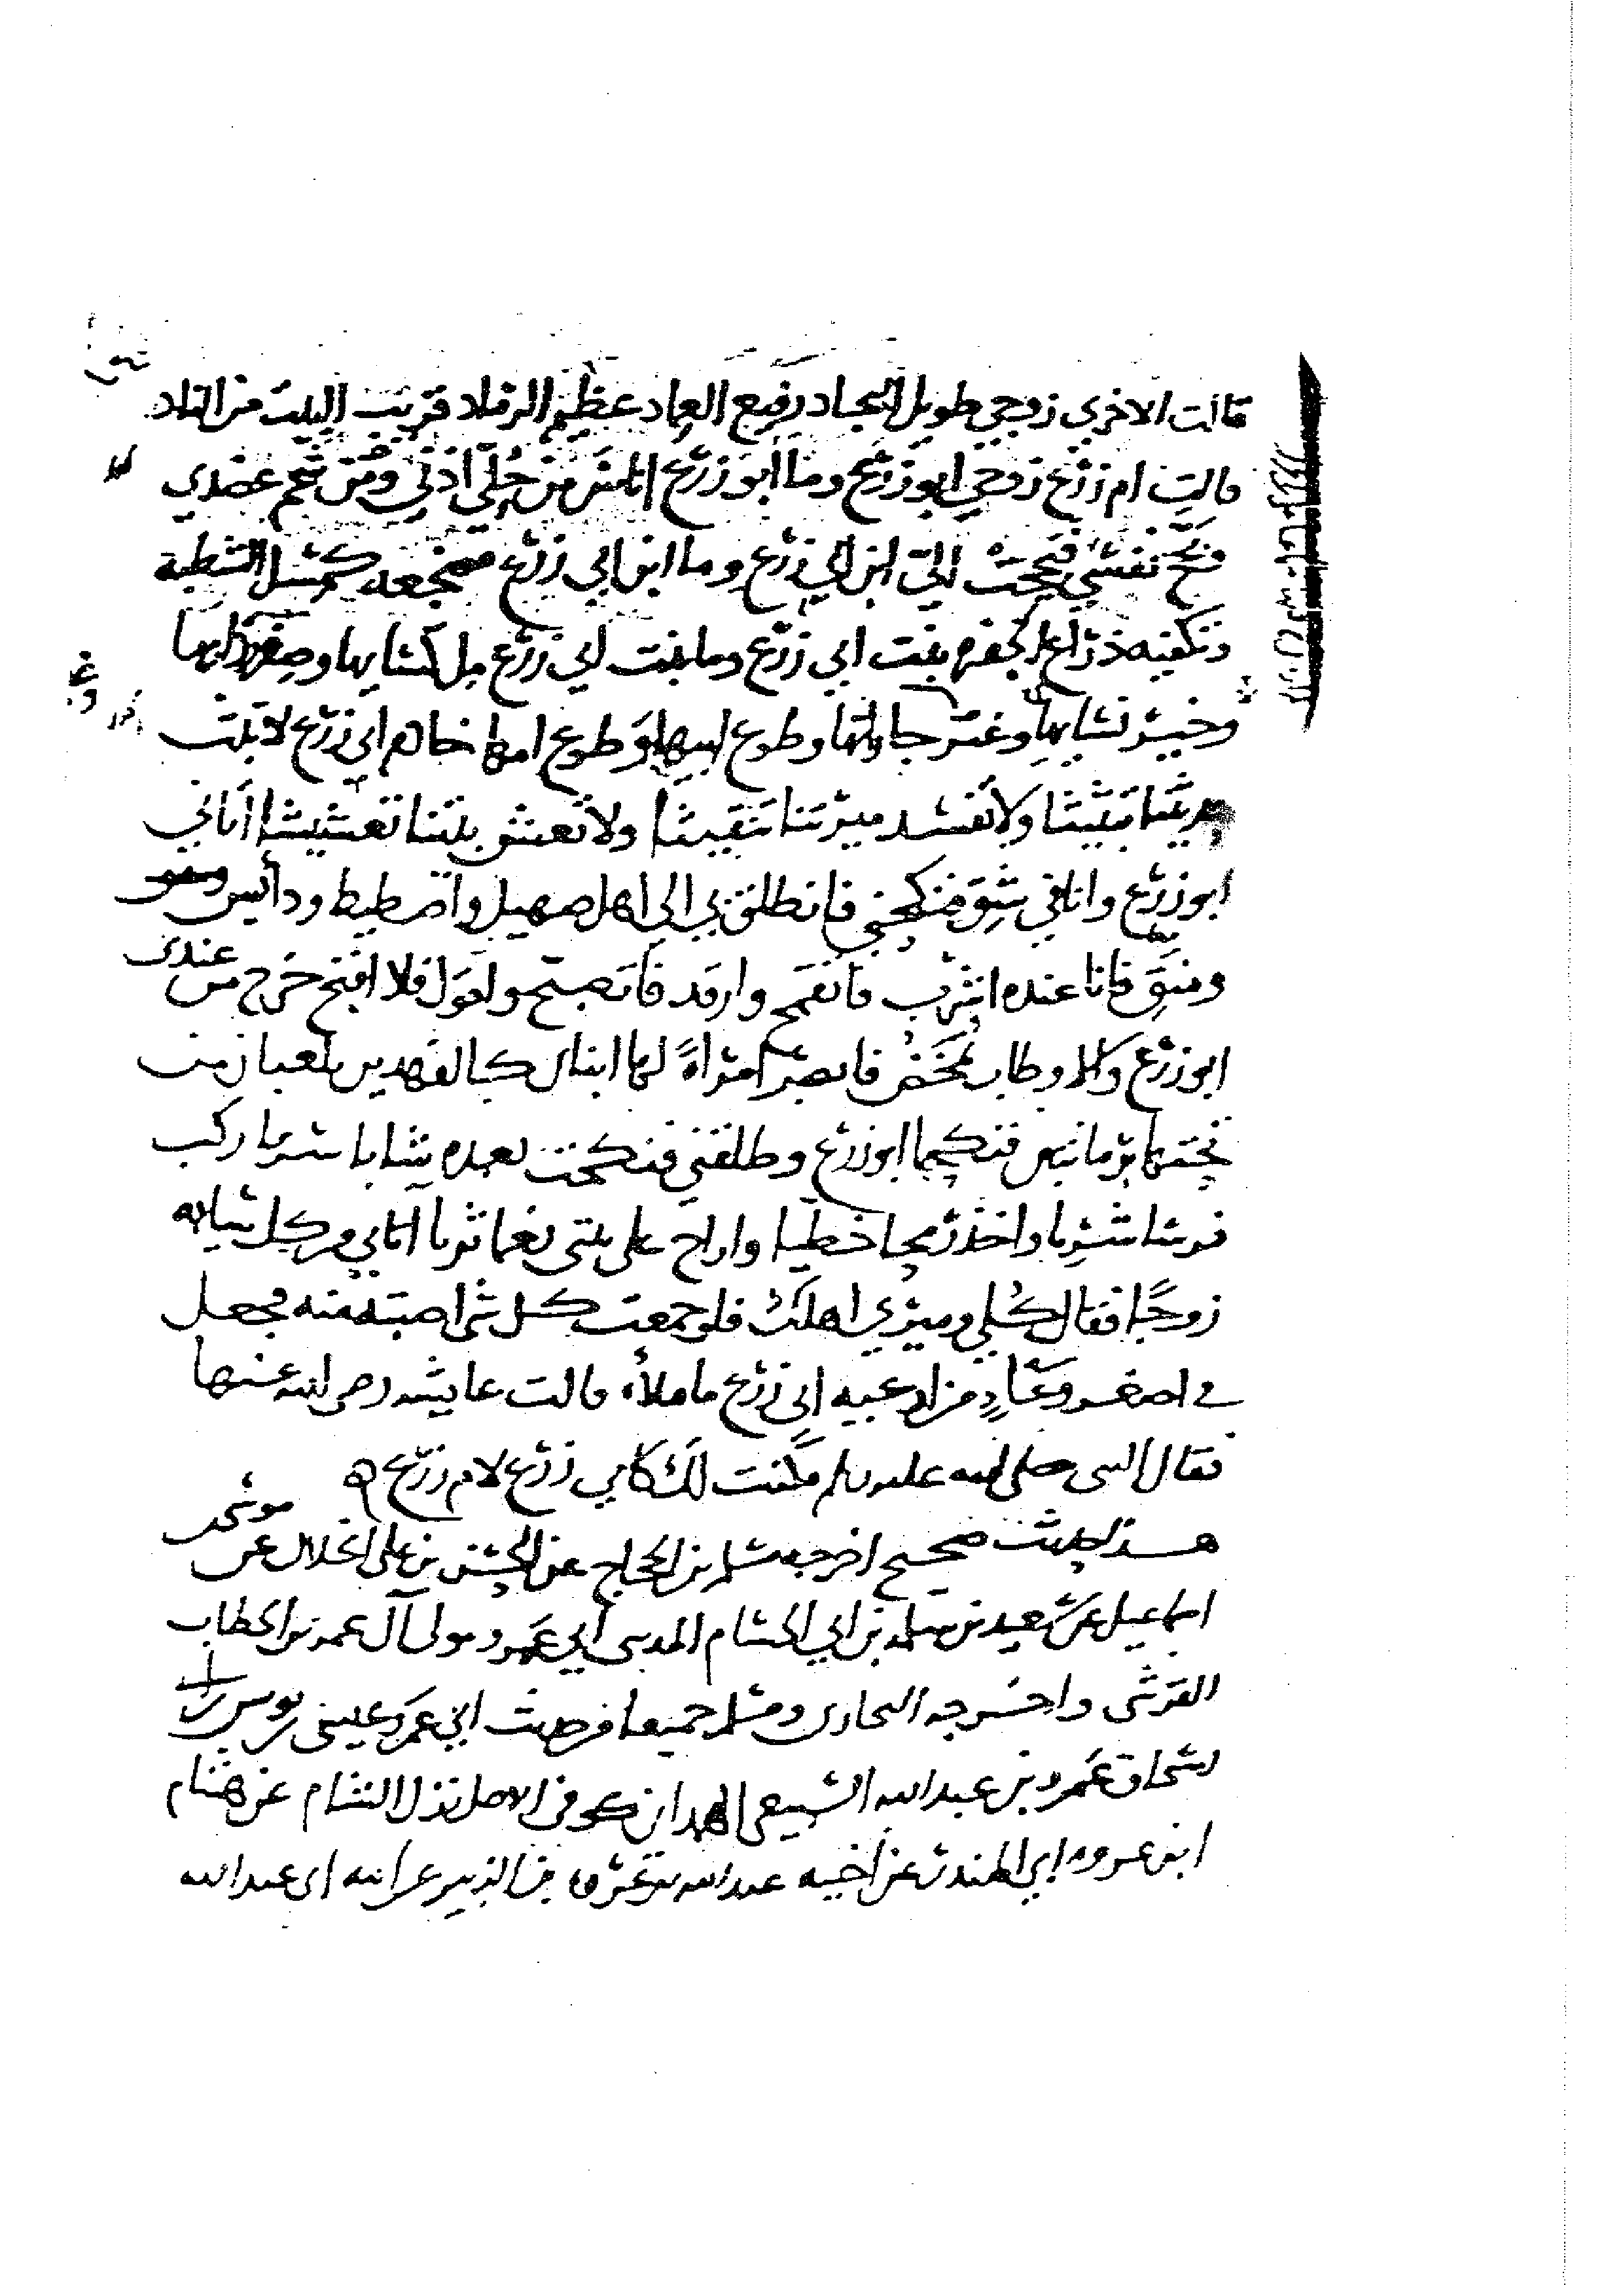 قالت الاخرى زوجي طويل النجاد رفيع العماد عظيم الرماد قريب البيت من الناد
قالت ام زرع زوجي ابو زرع وما ابو زرع اناس من حلي اذني ومن شحم عضدي
وبجح نفسي فبجحت الي ابن ابي زرع وما ابن ابي زرع مضجعه كمسل الشطبة
وتكفيه ذراع الجفره بنت ابي زرع وما بنت ابي زرع مل كسايها وصفر ردايها
وخير نسايها وعقر جاراتها وطوع ابيها وطوع امها خادم ابي زرع لا تبث
حديثنا تبثيثا ولا تفسد ميرتنا تنقيثا ولا تعشش بيتنا تعشيشا اتاني
ابو زرع وانا في شق فنكحني فانطلق بي الى اهل صهيل واطيط ودايس
ومنق فانا عنده اشرب فاتقمح وارقد فاتصبح واقول فلا اقبح خرج من عندى
ابو زرع والاوطاب تمخض فابصر امراة لها ابنان كالفهدين يلعبان من
تحتها برمانتين فنكحها ابو زرع وطلقني فنكحت بعده شابا سريا ركب
فرسا شريا واخذ رمحا خطيا واراح على بيتى نعما ثريا اتاني من كل شيابه
زوجا فقال كلي وميري اهلك فلو جمعت كل شى اصبته منه فجعل
في اصغر وعاء من اوعيه ابي زرع ما ملاه قالت عايشه رضى الله عنها
فقال النبى صلى الله عليه وسلم فكنت لك كابي زرع لام زرع
هذا حديث صحيح اخرجه مسلم بن الحجاج عن الحسن بن على الخلال عن موسى بن
اسماعيل عن سعيد بن سلمه بن ابي الحسام المدينى ابي عمرو مولى آل عمر بن الخطاب
القرشى واخرجه البخارى ومسلم جميعا من حديث ابي عمرو عيسى بن يونس بن ابى
اسحاق عمرو بن عبد الله السبيعى الهمدانى كوفى الاصل نزل الشام عن هشام
ابن عروه ابي المنذر عن اخيه عبد الله بن عروه بن الزبير عن ابيه ابى عبد الله